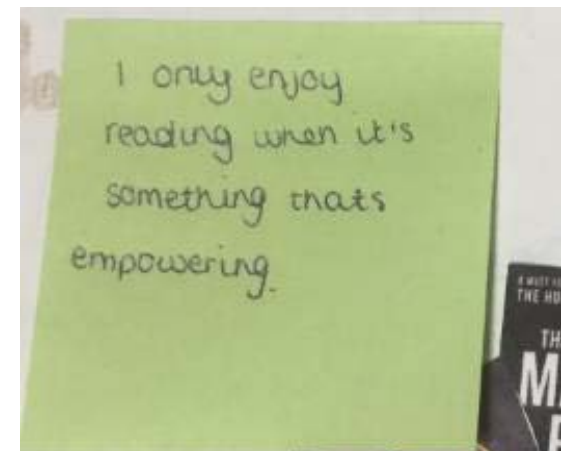 I only enjoy
reading when it's
something thats
empowering.
THE